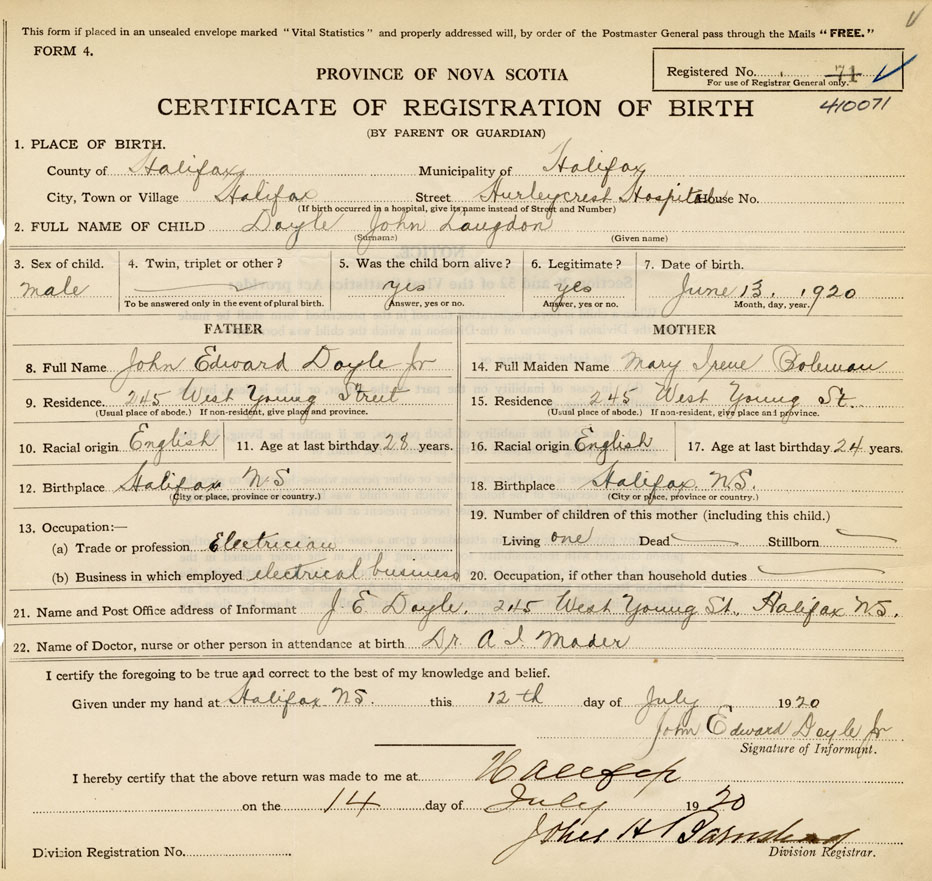 This form if placed in an unsealed envelope marked "Vital Statistics" and properly addressed will, by order of the Postmaster General pass through the Mails "FREE."
FORM 4.
PROVINCE OF NOVA SCOTIA
Registered No. 71
For use of Registrar General only.
CERTIFICATE OF REGISTRATION OF BIRTH
410071
(BY PARENT OR GUARDIAN)
1. PLACE OF BIRTH.
County of Halifax Municipality of Halifax
City, Town or Village Halifax Street Hurleycrest Hospital House No.
(If birth occurred in a hospital, give its name instead of Street and Number)
2. FULL NAME OF CHILD Doyle John Langdon
(Surname) (Given name)
3. Sex of child. 4. Twin, triplet or other? 5. Was the child born alive? 6. Legitimate? 7. Date of birth.
male yes yes June 13, 1920
To be answered only in the event of plural birth. Answer, yes or no. Answer, yes or no. Month, day, year.
FATHER MOTHER
8. Full Name John Edward Doyle Jr 14. Full Maiden Name Mary Irene Coleman
9. Residence. 245 West Young Street 15. Residence 245 West Young St.
(Usual place of abode.) If non-resident, give place and province. (Usual place of abode.) If non-resident, give place and province.
10. Racial origin English 11. Age at last birthday 28 years. 16. Racial origin English 17. Age at last birthday 24 years.
12. Birthplace Halifax NS 18. Birthplace Halifax N.S.
(City or place, province or country.) (City or place, province or country.)
13. Occupation:— 19. Number of children of this mother (including this child.)
(a) Trade or profession Electrician Living one Dead Stillborn
(b) Business in which employed electrical business 20. Occupation, if other than household duties
21. Name and Post Office address of Informant J. E. Doyle. 245 West Young St. Halifax N.S.
22. Name of Doctor, nurse or other person in attendance at birth Dr. A I. Mader
I certify the foregoing to be true and correct to the best of my knowledge and belief.
Given under my hand at Halifax NS. this 12th day of July 1920
John Edward Doyle Jr
Signature of Informant.
I hereby certify that the above return was made to me at Halifax
on the 14 day of July 1920
John H
Division Registration No. Division Registrar.